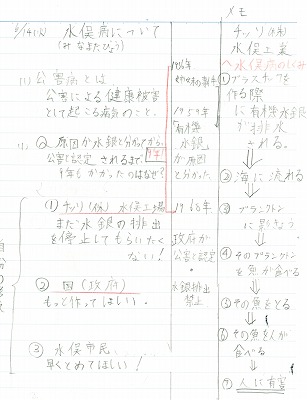 6/14(火) 水俣病について
(みなまたびょう)
(1) 公害病とは
公害による健康被害
として起こる病気のこと。
② 原因が水銀と分かってから、
公害と認定されるまで、9年!
9年もかかったのはなぜ?
(1) チッソ(株) 水俣工場
まだ水銀の排出
を停止してもらいたく
ない!
② 国(政府)
もっと作ってほしい。
③ 水俣市民、
早くとめてほしい!
1959年
「有機
水銀」
が原因
と分かった。
1968年
政府が
公害と認定
水銀排出
禁止
メモ
チッソ(株)
水俣工業
水俣病のしくみ
① プラスチックを
作る際
に有機水銀
が排水
される。
② 海に流れる
③ プランクトン
に影きょう
④ そのプランクトン
を魚が食べる
⑤ その魚をとる
⑥ その魚を人が
食べる
⑦ 人に有害